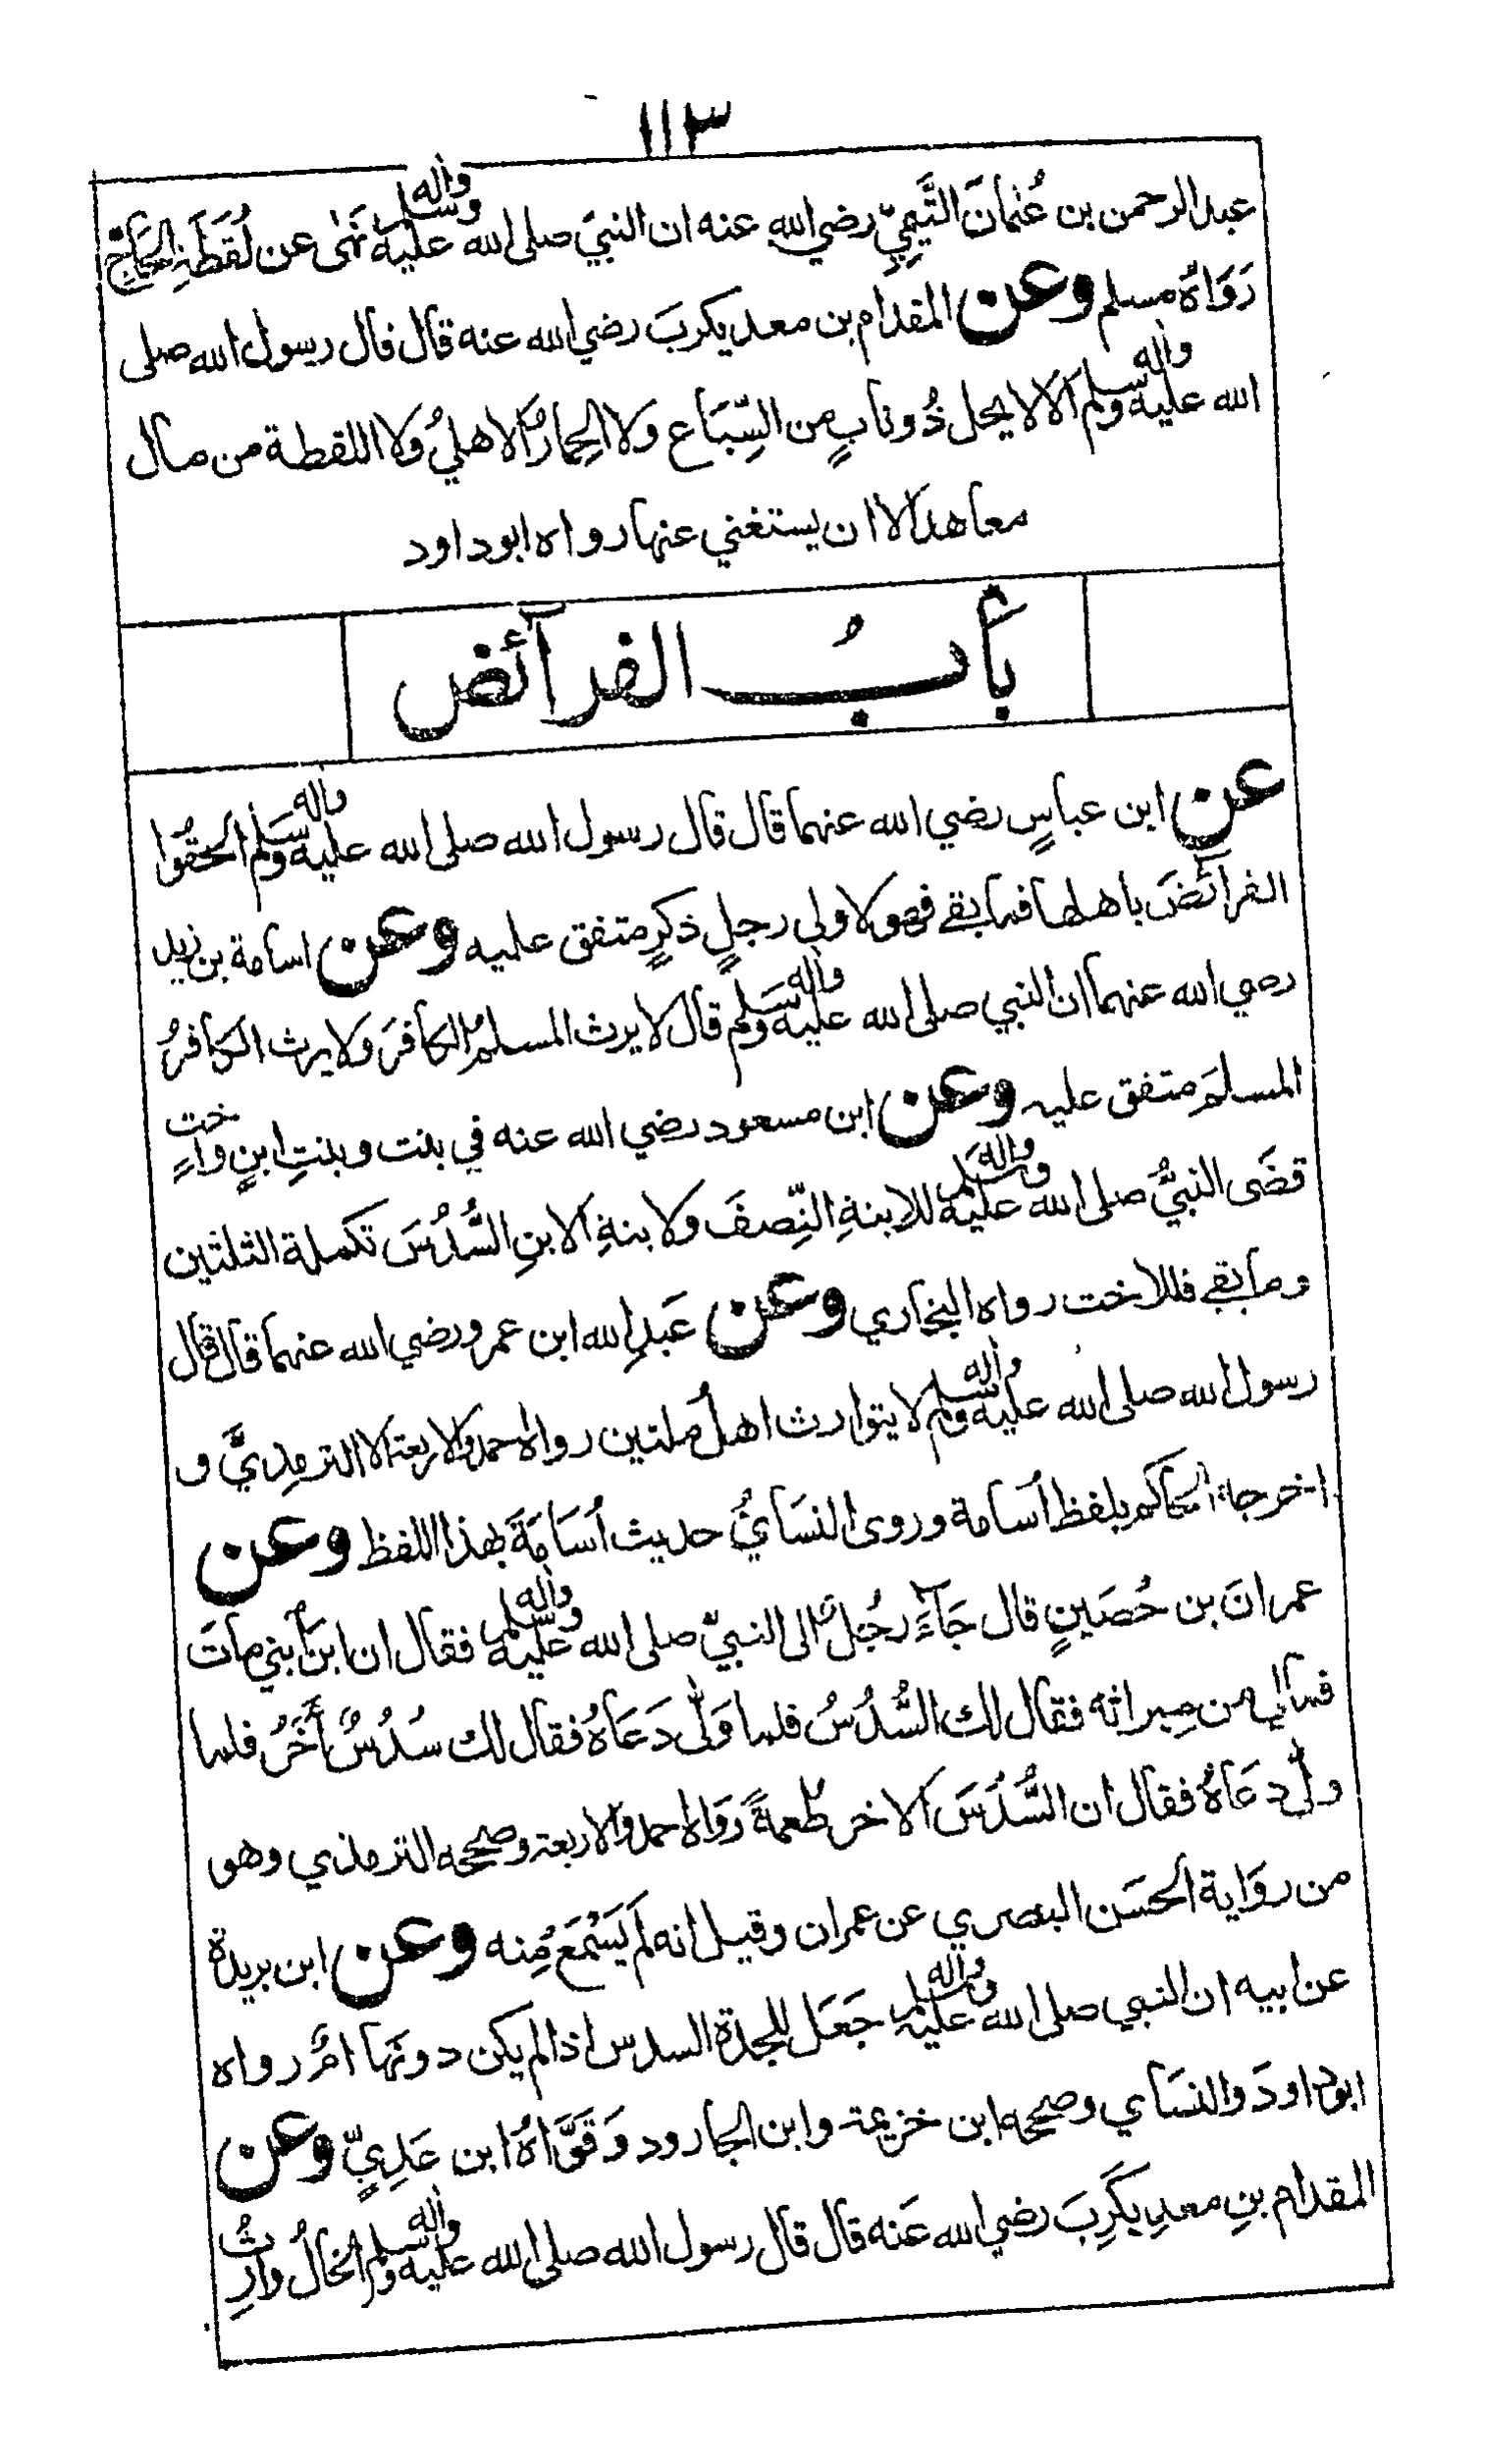 ١١٣
عبد الرحمن بن عُثمانَ التَّيمِيّ رضي الله عنه ان النبيَ صلى الله عليه واله وسلم نَهٰى عن لُقَطَةِ الحَآجِّ
رَوَاهُ مسلم وعن المقدام بن معد يكربَ رضي الله عنه قال قال رسول الله صلى
الله عليه واله وسلم الا لا يحل ذُو نابٍ من السِّبَاع ولا الحِمارُ الاهليُ ولا اللقطة من مال
معاهد الا ان يستغني عنها رواه ابو داود
بَابُ الفرآئض
عن ابن عباسٍ رضي الله عنهما قال قال رسول الله صلى الله عليه واله وسَلم الحقُوا
الفرآئضَ باهلها فما بقے فهو لاولى رجلٍ ذكرٍ متفق عليه وعن اسامة بن زيد
رضي الله عنهما ان النبي صلى الله عليه واله وسَلم قال لا يرث المسلمُ الكافرَ ولا يرث الكافرُ
المسلمَ متفق عليه وعن ابن مسعود رضي الله عنه في بنت وبنتِ ابنٍ واختٍ
قضَى النبيُّ صلى الله عليه واله وسلم للابنةِ النِّصفَ ولابنةِ الابنِ السُّدُسَ تكملة الثلثين
وما بقے فللاخت رواه البخاري وعن عَبدِ الله ابن عمرو رضي الله عنهما قال قال
رسول الله صلى الله عليه واله وسلم لا يتوارث اهلُ ملتين رواه احمد والاربعة الا الترمِذيَّ و
اخرجه الحاكم بلفظ اُسامة وروى النسَائيُّ حديث اُسَامَةَ بهذا اللفظ وعن
عمرانَ بن حُصَينٍ قال جَآءَ رجُلٌ الى النبيّ صلى الله عليه واله وسلم فقال ان ابنَ ابني ماتَ
فمالي من ميراثه فقال لك السُّدُسُ فلما وَلّٰى دَعَاهُ فقال لك سُدُسٌ اٰخَرُ فلما
ولّٰى دعَاهُ فقال ان السُّدُسَ الاخر طُعمةً رَوَاه احمد والاربعة وصححه الترمذي وهو
من روَاية الحسَن البصري عن عمران وقيل انه لم يَسْمَعْ مِنه وعن ابن بريدة
عن ابيه ان النبي صلى الله عليه واله وسلم جَعَل للجدة السدس اذا لم يكن دونَها امٌّ رواه
ابو داودَ والنسَاي وصححه ابن خزيمة وابن الجارود وَقَوَّاهُ ابن عَدِيٍّ وعن
المقدام بنِ معدِ يكَرِبَ رضي الله عَنه قال قال رسول الله صلى الله عليه واله وسلم الخالُ وارِثُ